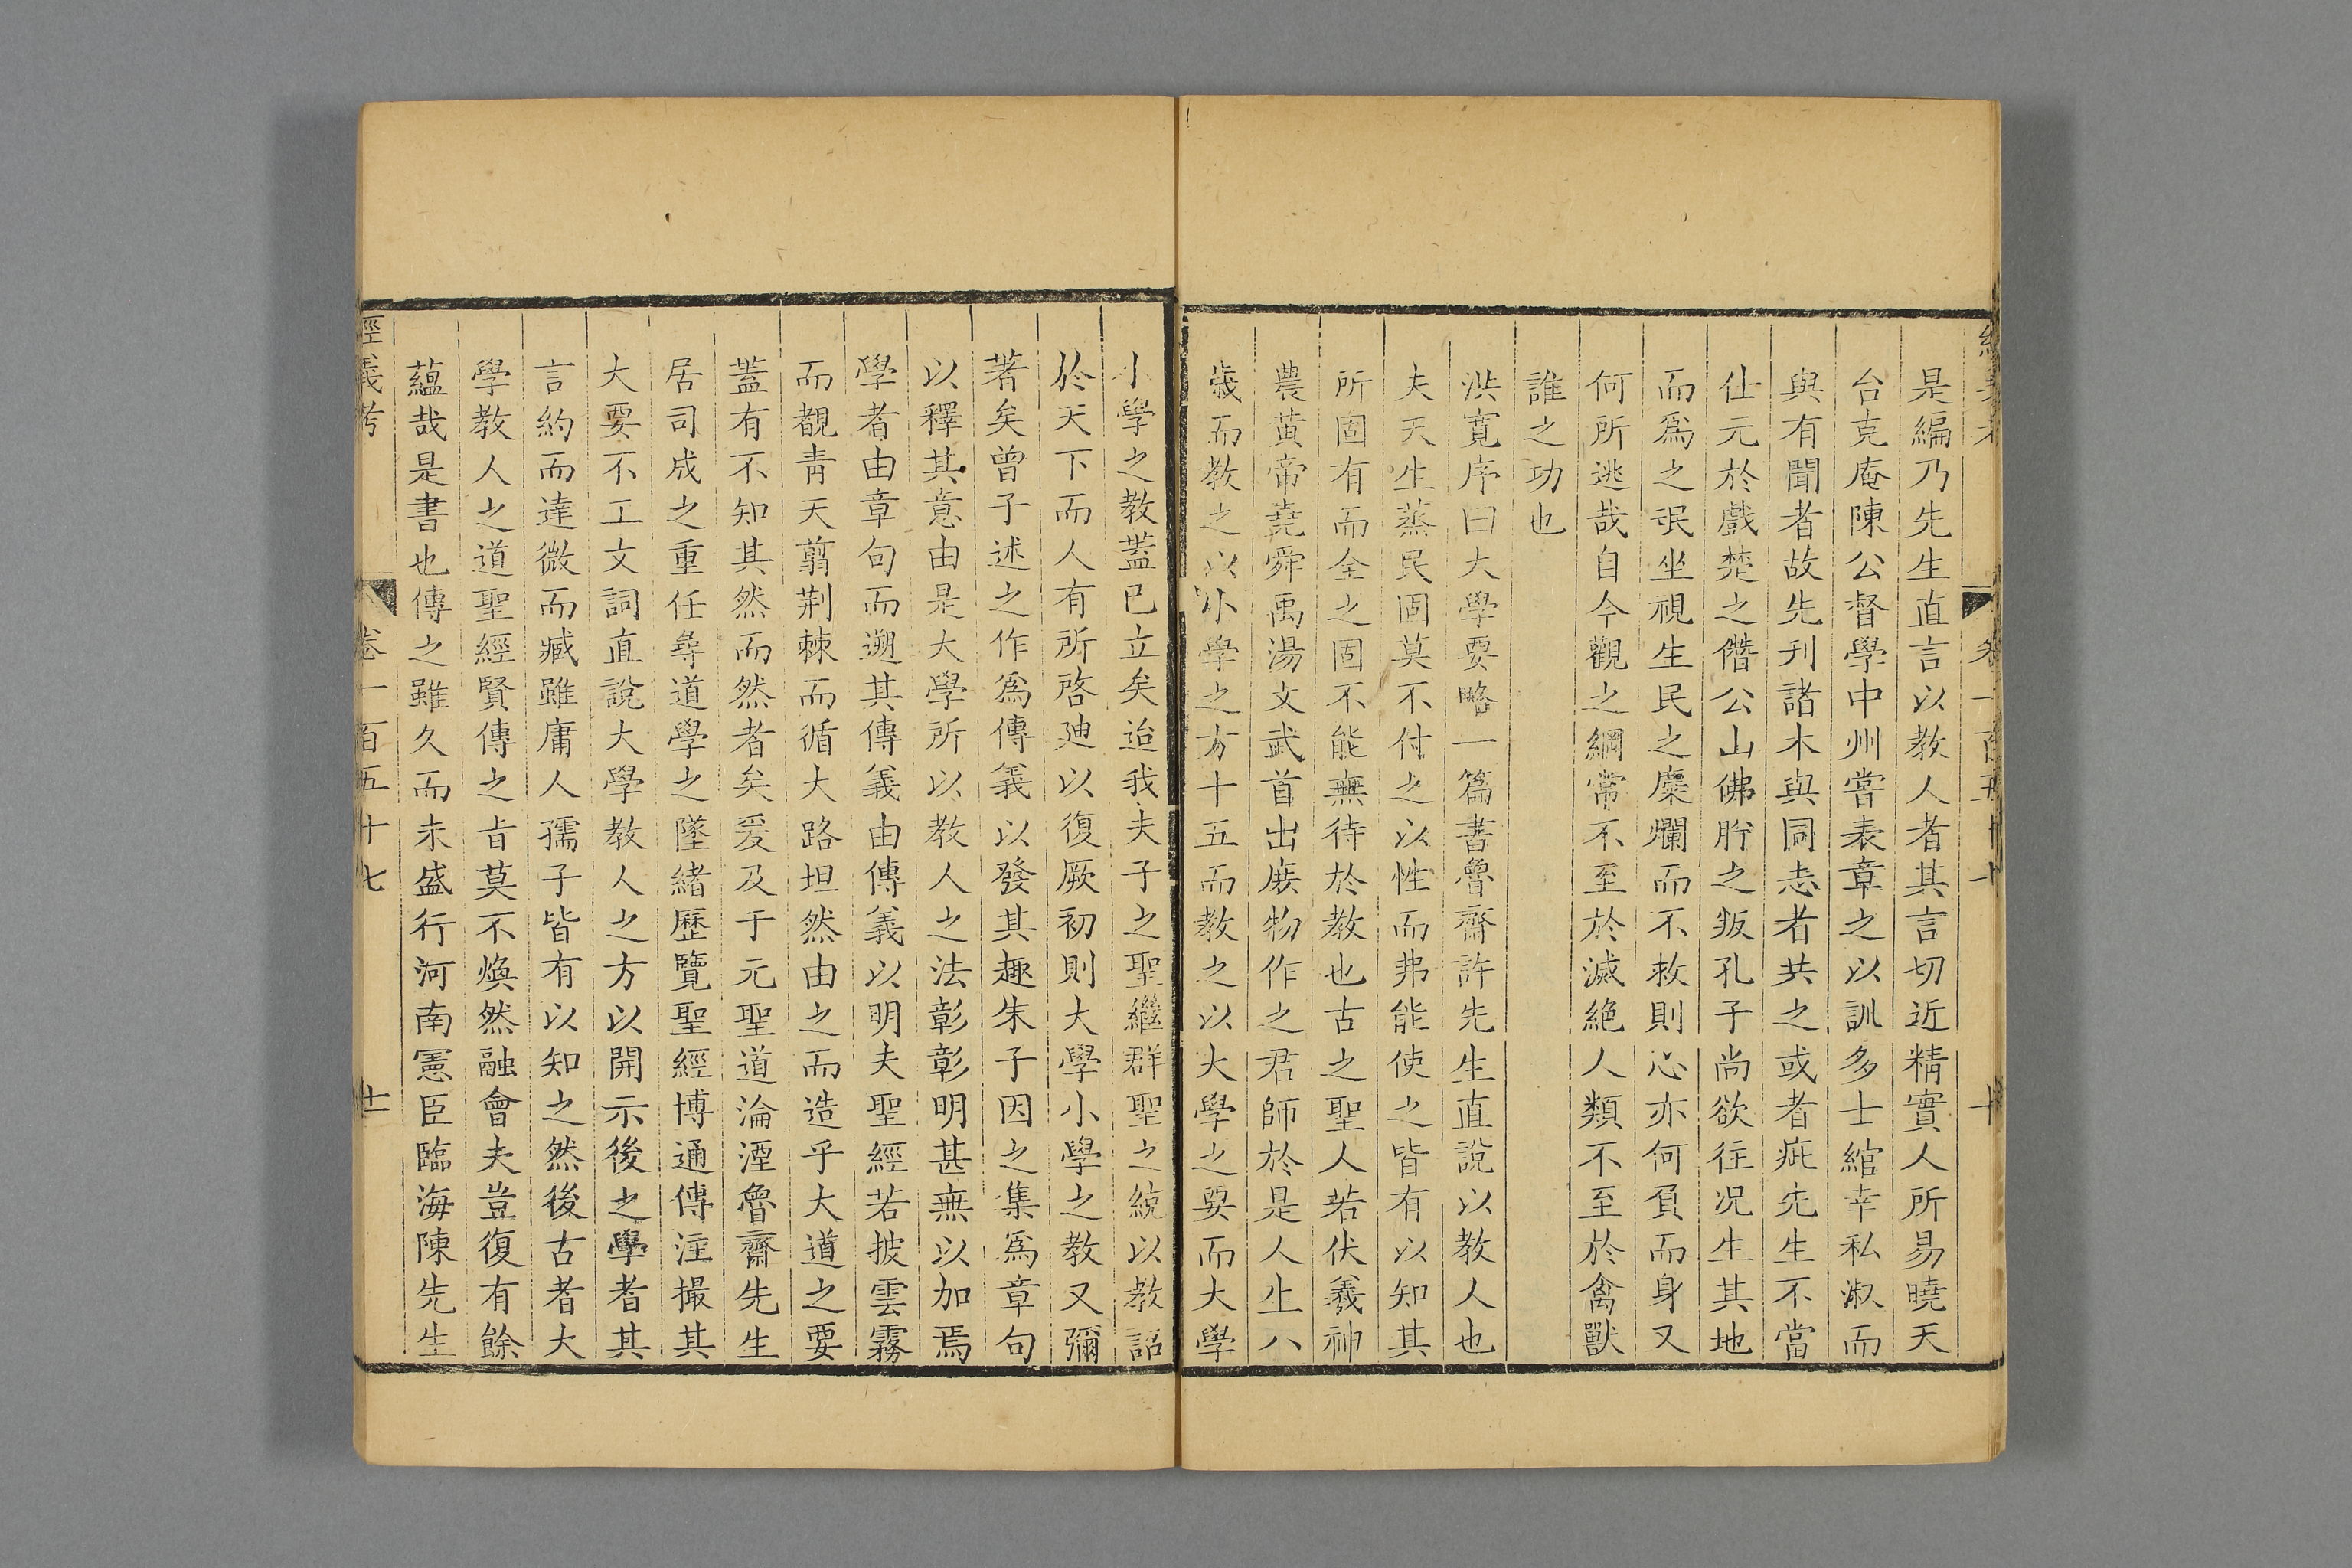 是編乃先生直言以教人者其言切近精實人所易曉天
台克庵陳公督學中州嘗表章之以訓多士綰幸私淑而
與有聞者故先刊諸木與同志者共之或者疵先生不當
仕元於戲楚之僭公山佛肸之叛孔子尚欲往况生其地
而爲之氓坐視生民之糜爛而不救則心亦何負而身又
何所逃哉自今觀之綱常不至於滅絶人類不至於禽獸
誰之功也
洪寛序曰大學要略一篇書魯齋許先生直說以教人也
夫天生蒸民固莫不付之以性而弗能使之皆有以知其
所固有而全之固不能無待於教也古之聖人若伏羲神
農黄帝堯舜禹湯文武首出庶物作之君師於是人生八
歲而教之以小學之方十五而教之以大學之要而大學
小學之教葢已立矣迨我夫子之聖繼群聖之統以教詔
於天下而人有所啓廸以復厥初則大學小學之教又彌
著矣曾子述之作爲傳義以發其趣朱子因之集爲章句
以釋其意由是大學所以教人之法彰彰明甚無以加焉
學者由章句而遡其傳義由傳義以明夫聖經若披雲霧
而覩青天翦荆棘而循大路坦然由之而造乎大道之要
葢有不知其然而然者矣爰及于元聖道淪湮魯齋先生
居司成之重任尋道學之墜緒歷覽聖經博通傳注撮其
大要不工文詞直說大學教人之方以開示後之學者其
言約而達微而臧雖庸人孺子皆有以知之然後古者大
學教人之道聖經賢傳之旨莫不煥然融會夫豈復有餘
蘊哉是書也傳之雖久而未盛行河南憲臣臨海陳先生
經義考 卷一百五十七 十一